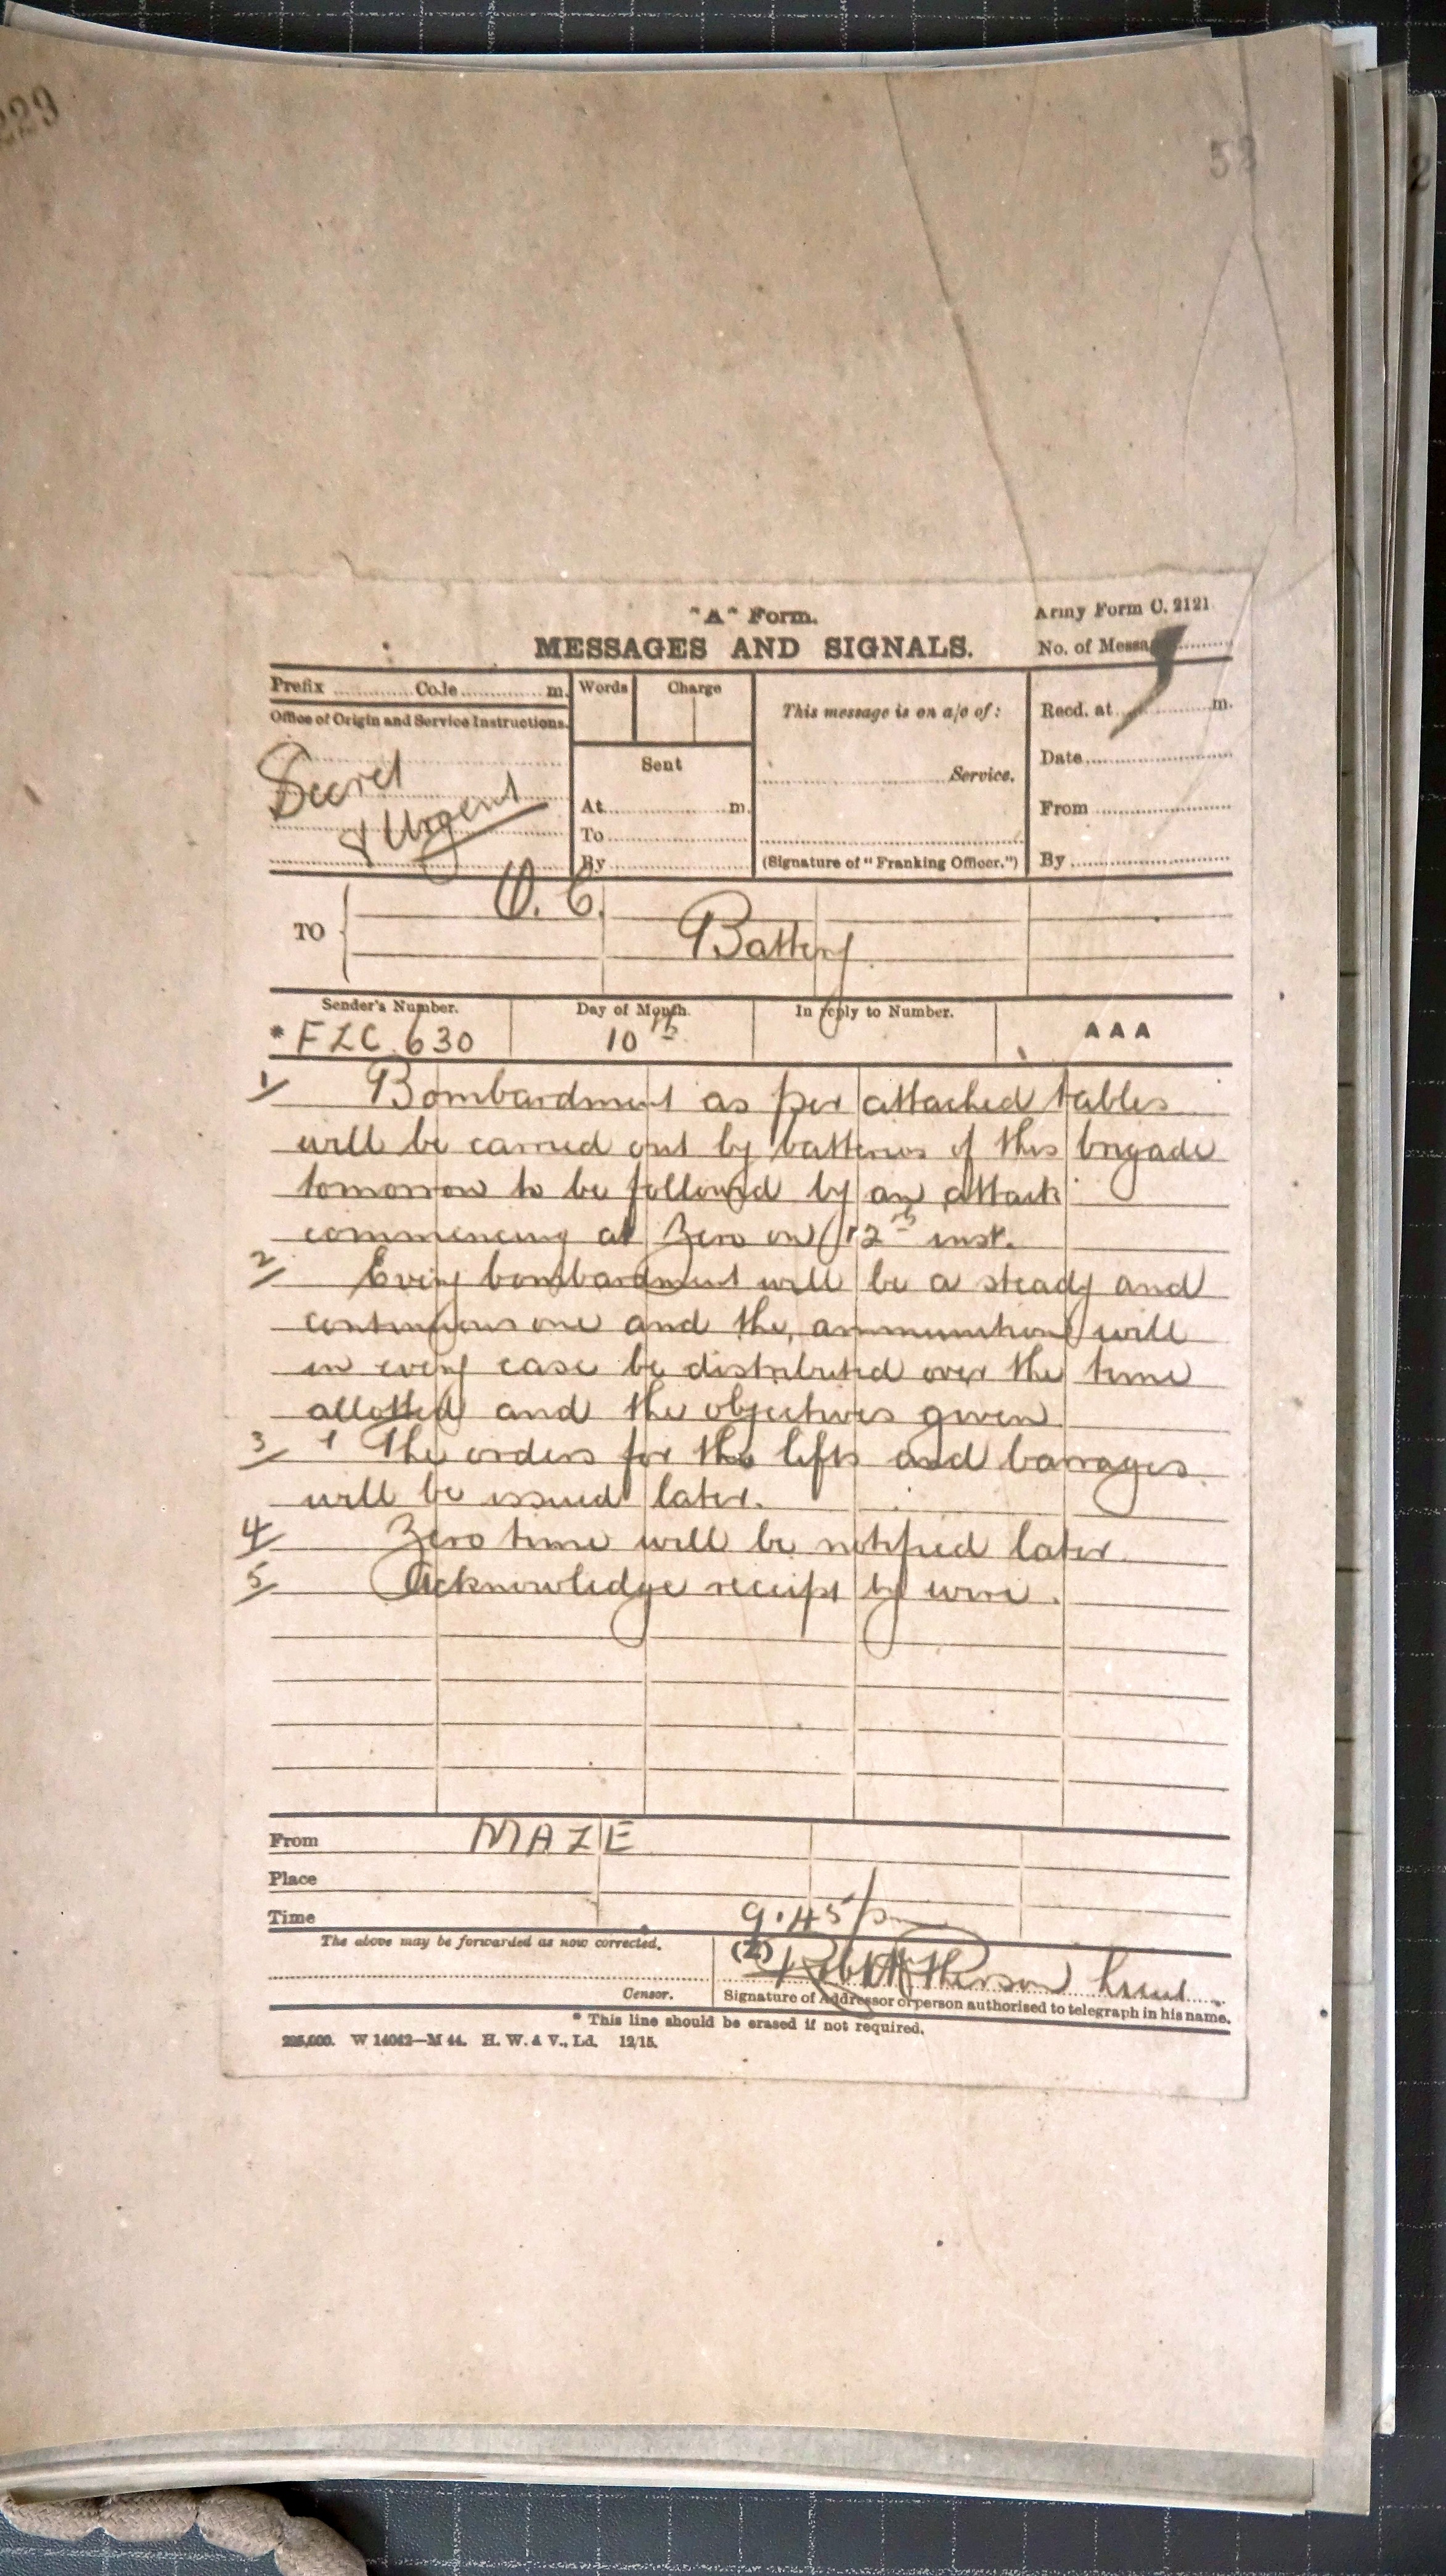 229
58
"A" Form.
Army Form C. 2121
MESSAGES AND SIGNALS.
No. of Messa
Prefix Code m.
Words
Charge
This message is on a/c of:
Recd. at m.
Office of Origin and Service Instructions.
Secret
& Urgent
Sent
At m.
To
By
Service.
(Signature of "Franking Officer.")
Date
From
By
TO
O. C.
Battery
Sender's Number.
Day of Month.
In reply to Number.
AAA
* FZC 630
10th
1/ Bombardment as per attached tables
will be carried out by batteries of this brigade
tomorrow to be followed by an attack
commencing at Zero on 12th inst.
2/ Every bombardment will be a steady and
continuous one and the ammunition will
in every case be distributed over the time
allotted and the objectives given
3/ The orders for the lifts and barrages
will be issued later.
4/ Zero time will be notified later
5/ Acknowledge receipt by wire.
From
MAZE
Place
Time
9.45 p
The above may be forwarded as now corrected.
(Z)
Lieut
Censor.
Signature of Addressor or person authorised to telegraph in his name.
* This line should be erased if not required.
W 14042—M 44. H. W. & V., Ld. 12/15.